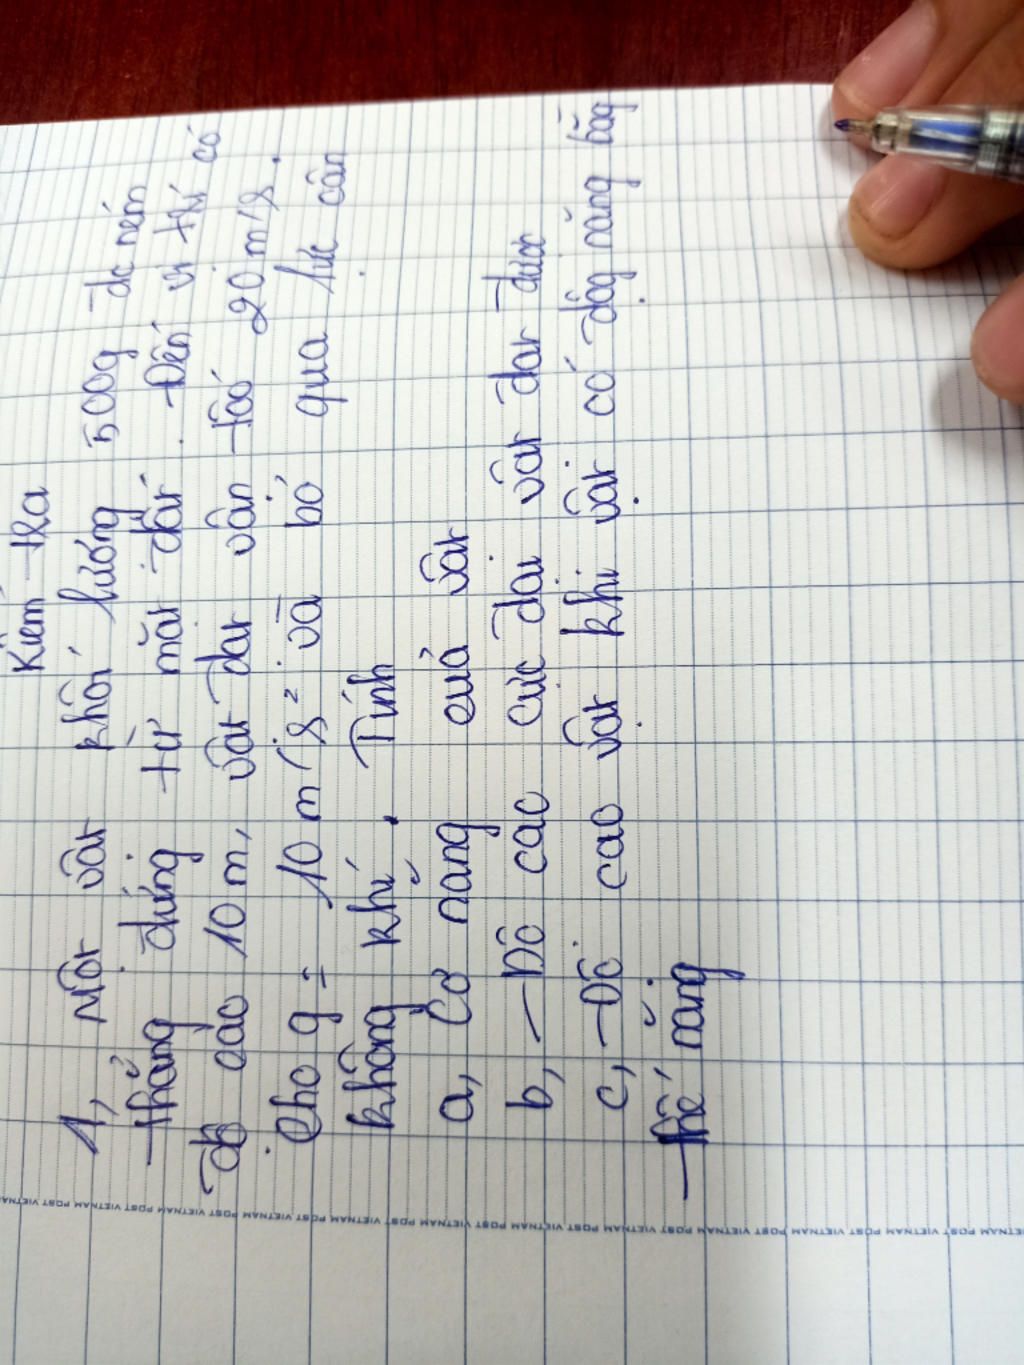 Kiểm tra
1, Một vật khối lượng 500g đc ném
thẳng đứng từ mặt đất. Đến vị trí có
độ cao 10 m, vật đạt vận tốc 20 m/s.
Cho g = 10 m/s² và bỏ qua lực cản
không khí. Tính
a, Cơ năng của vật
b, Độ cao cực đại vật đạt được
c, Độ cao vật khi vật có động năng bằng
thế năng
VIETNAM POST VIETNAM POST VIETNAM POST VIETNAM POST VIETNAM POST VIETNAM POST VIETNAM POST VIETNAM POST VIETNAM POST VIETNAM POST VIETNAM POST